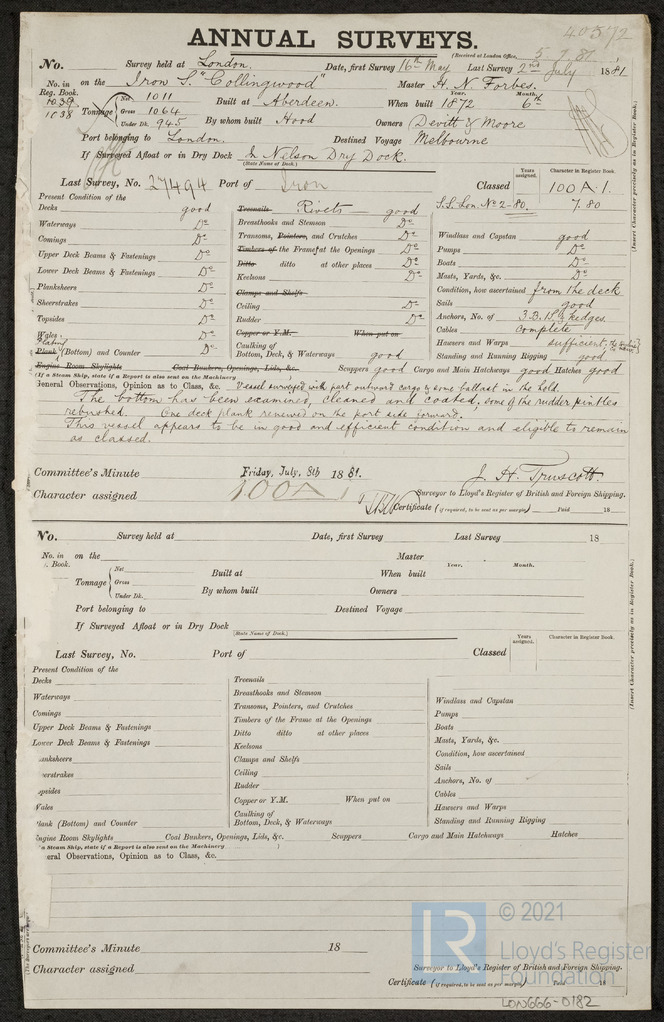 40572
ANNUAL SURVEYS.
(Received at London Office, 5.7.81
No. Survey held at London. Date, first Survey 16th May Last Survey 2nd July 1881
No. in Reg. Book. on the Iron S. "Collingwood" Master H. N. Forbes.
1039 1038
Tonnage Net 1011 Gross 1064 Under Dk. 945
Built at Aberdeen. When built Year. 1872 Month. 6th
By whom built Hood Owners Devitt & Moore
Port belonging to London. Destined Voyage Melbourne
If Surveyed Afloat or in Dry Dock In Nelson Dry Dock.
(State Name of Dock.)
Last Survey, No. 27494 Port of Iron Classed Years assigned. Character in Register Book. 100 A.1.
S.S. Lon. No 2-80. 7.80
(Insert Character precisely as in Register Book.)
Present Condition of the
Decks good
Waterways Do
Comings Do
Upper Deck Beams & Fastenings Do
Lower Deck Beams & Fastenings Do
Planksheers Do
Sheerstrakes Do
Topsides Do
Wales Do
Plating
Plank (Bottom) and Counter Do
Engine Room Skylights
Treenails Rivets good
Breasthooks and Stemson Do
Transoms, Pointers, and Crutches Do
Timbers of the Frame at the Openings Do
Ditto ditto at other places Do
Keelsons Do
Clamps and Shelfs
Ceiling Do
Rudder Do
Copper or Y.M. When put on
Caulking of Bottom, Deck, & Waterways good
Coal Bunkers, Openings, Lids, &c. Scuppers good
Windlass and Capstan good
Pumps Do
Boats Do
Masts, Yards, &c. Do
Condition, how ascertained from the deck
Sails good
Anchors, No. of 3.B. 1S. 2 kedges.
Cables Complete
Hawsers and Warps sufficient,
Standing and Running Rigging good
Cargo and Main Hatchways good Hatches good
(If a Steam Ship, state if a Report is also sent on the Machinery
General Observations, Opinion as to Class, &c. Vessel surveyed with part outward cargo & some ballast in the hold.
The bottom has been examined, cleaned and coated, some of the rudder pintles
rebushed. One deck plank renewed on the port side forward.
This vessel appears to be in good and efficient condition and eligible to remain
as classed.
Committee's Minute Friday, July, 8th 1881.
J. H. Truscott.
Character assigned 100 A 1
Surveyor to Lloyd's Register of British and Foreign Shipping.
Certificate (if required, to be sent as per margin) Paid 18
No. Survey held at Date, first Survey Last Survey 18
No. in Book. on the Master
Tonnage Net Gross Under Dk.
Built at When built Year. Month.
By whom built Owners
Port belonging to Destined Voyage
If Surveyed Afloat or in Dry Dock
(State Name of Dock.)
Last Survey, No. Port of Classed Years assigned. Character in Register Book.
(Insert Character precisely as in Register Book.)
Present Condition of the
Decks
Waterways
Comings
Upper Deck Beams & Fastenings
Lower Deck Beams & Fastenings
anksheers
erstrakes
opsides
Vales
lank (Bottom) and Counter
ngine Room Skylights
Treenails
Breasthooks and Stemson
Transoms, Pointers, and Crutches
Timbers of the Frame at the Openings
Ditto ditto at other places
Keelsons
Clamps and Shelfs
Ceiling
Rudder
Copper or Y.M. When put on
Caulking of Bottom, Deck, & Waterways
Coal Bunkers, Openings, Lids, &c. Scuppers
Windlass and Capstan
Pumps
Boats
Masts, Yards, &c.
Condition, how ascertained
Sails
Anchors, No. of
Cables
Hawsers and Warps
Standing and Running Rigging
Cargo and Main Hatchways Hatches
a Steam Ship, state if a Report is also sent on the Machinery )
eral Observations, Opinion as to Class, &c.
Committee's Minute 18
Character assigned
Surveyor to Lloyd's Register of British and Foreign Shipping.
Certificate (if required, to be sent as per margin) Paid 18
LR © 2021
Lloyd's Register
Foundation
LON666-0182